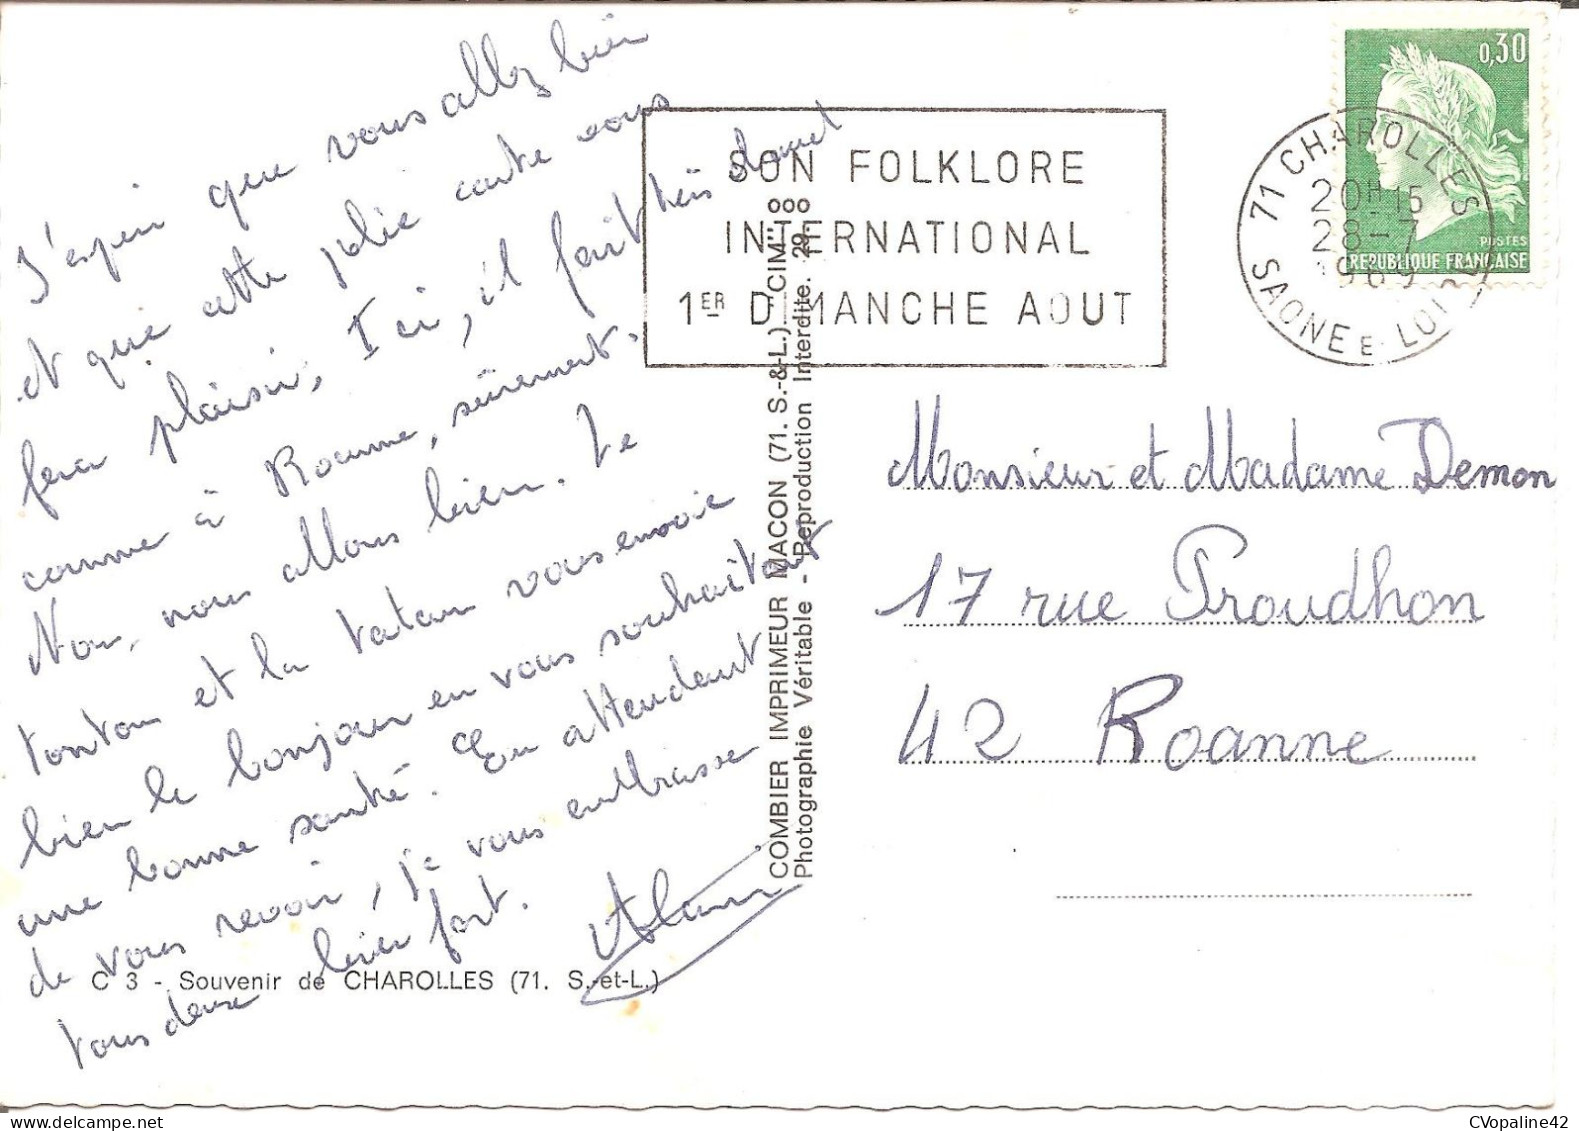 J'espère que vous allez bien
et que cette jolie carte vous
fera plaisir, Ici, il fait très chaud
comme à Roanne, sûrement.
Nous, nous allons bien. Le
tonton et la tatan vous envoie
bien le bonjour en vous souhaitant
une bonne santé. En attendant
de vous revoir, je vous embrasse
tous deux bien fort.
Alain
C 3 - Souvenir de CHAROLLES (71. S.-et-L.)
COMBIER IMPRIMEUR MACON (71. S.-&-L.) "CIM"
Photographie Véritable - Reproduction Interdite. 29.
SON FOLKLORE
INTERNATIONAL
1ER DIMANCHE AOUT
71 CHAROLLES
20H15
28-7
1969
SAONE E. LOIRE
0,30
POSTES
REPUBLIQUE FRANÇAISE
Monsieur et Madame Demon
17 rue Proudhon
42 Roanne
CVopaline42